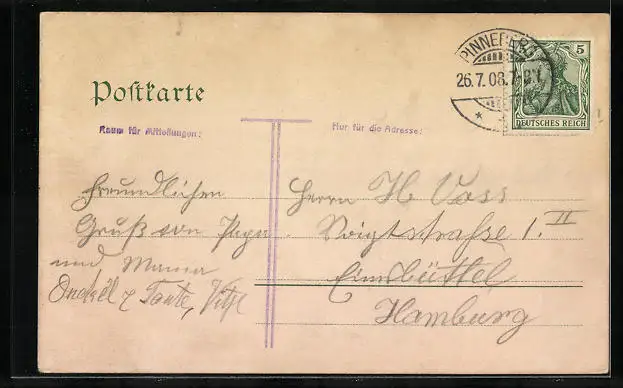 PINNEBERG
26.7.08.7-8V.
5
DEUTSCHES REICH
Postkarte
Raum für Mitteilungen:
Nur für die Adresse:
Freundlichen
Gruß von Papa
und Mama
Onckel & Tante,
Herrn H Voss
Voigtstraße 1. II
Eimsbüttel
Hamburg